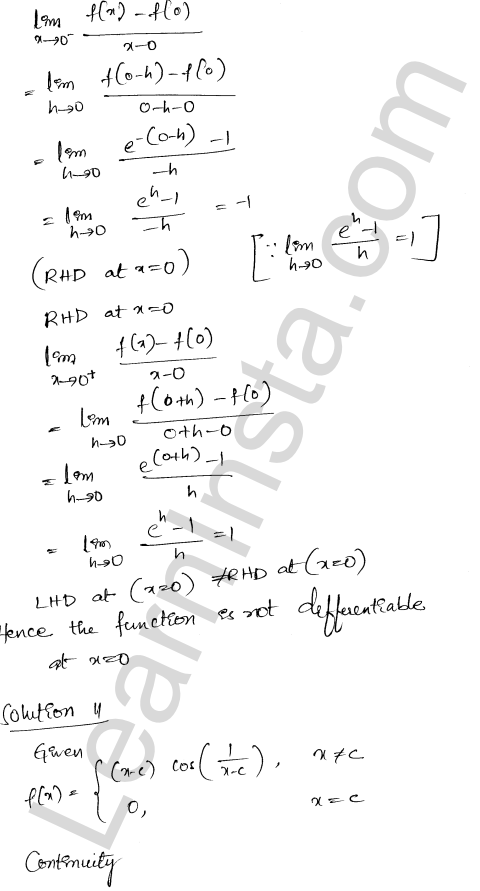 lim x→0⁻ (f(x) - f(0))/(x-0)
= lim h→0 (f(0-h) - f(0))/(0-h-0)
= lim h→0 (e^-(0-h) - 1)/(-h)
= lim h→0 (e^h - 1)/(-h) = -1
[∵ lim h→0 (e^h - 1)/h = 1]
(RHD at x=0)
RHD at x=0
lim x→0+ (f(x) - f(0))/(x-0)
= lim h→0 (f(0+h) - f(0))/(0+h-0)
= lim h→0 (e^(0+h) - 1)/h
= lim h→0 (e^h - 1)/h = 1
LHD at (x=0) ≠ RHD at (x=0)
Hence the function is not differentiable
at x=0
Solution 4
Given
f(x) = { (x-c) cos(1/(x-c)), x≠c
0, x=c
Continuity
LearnInsta.com